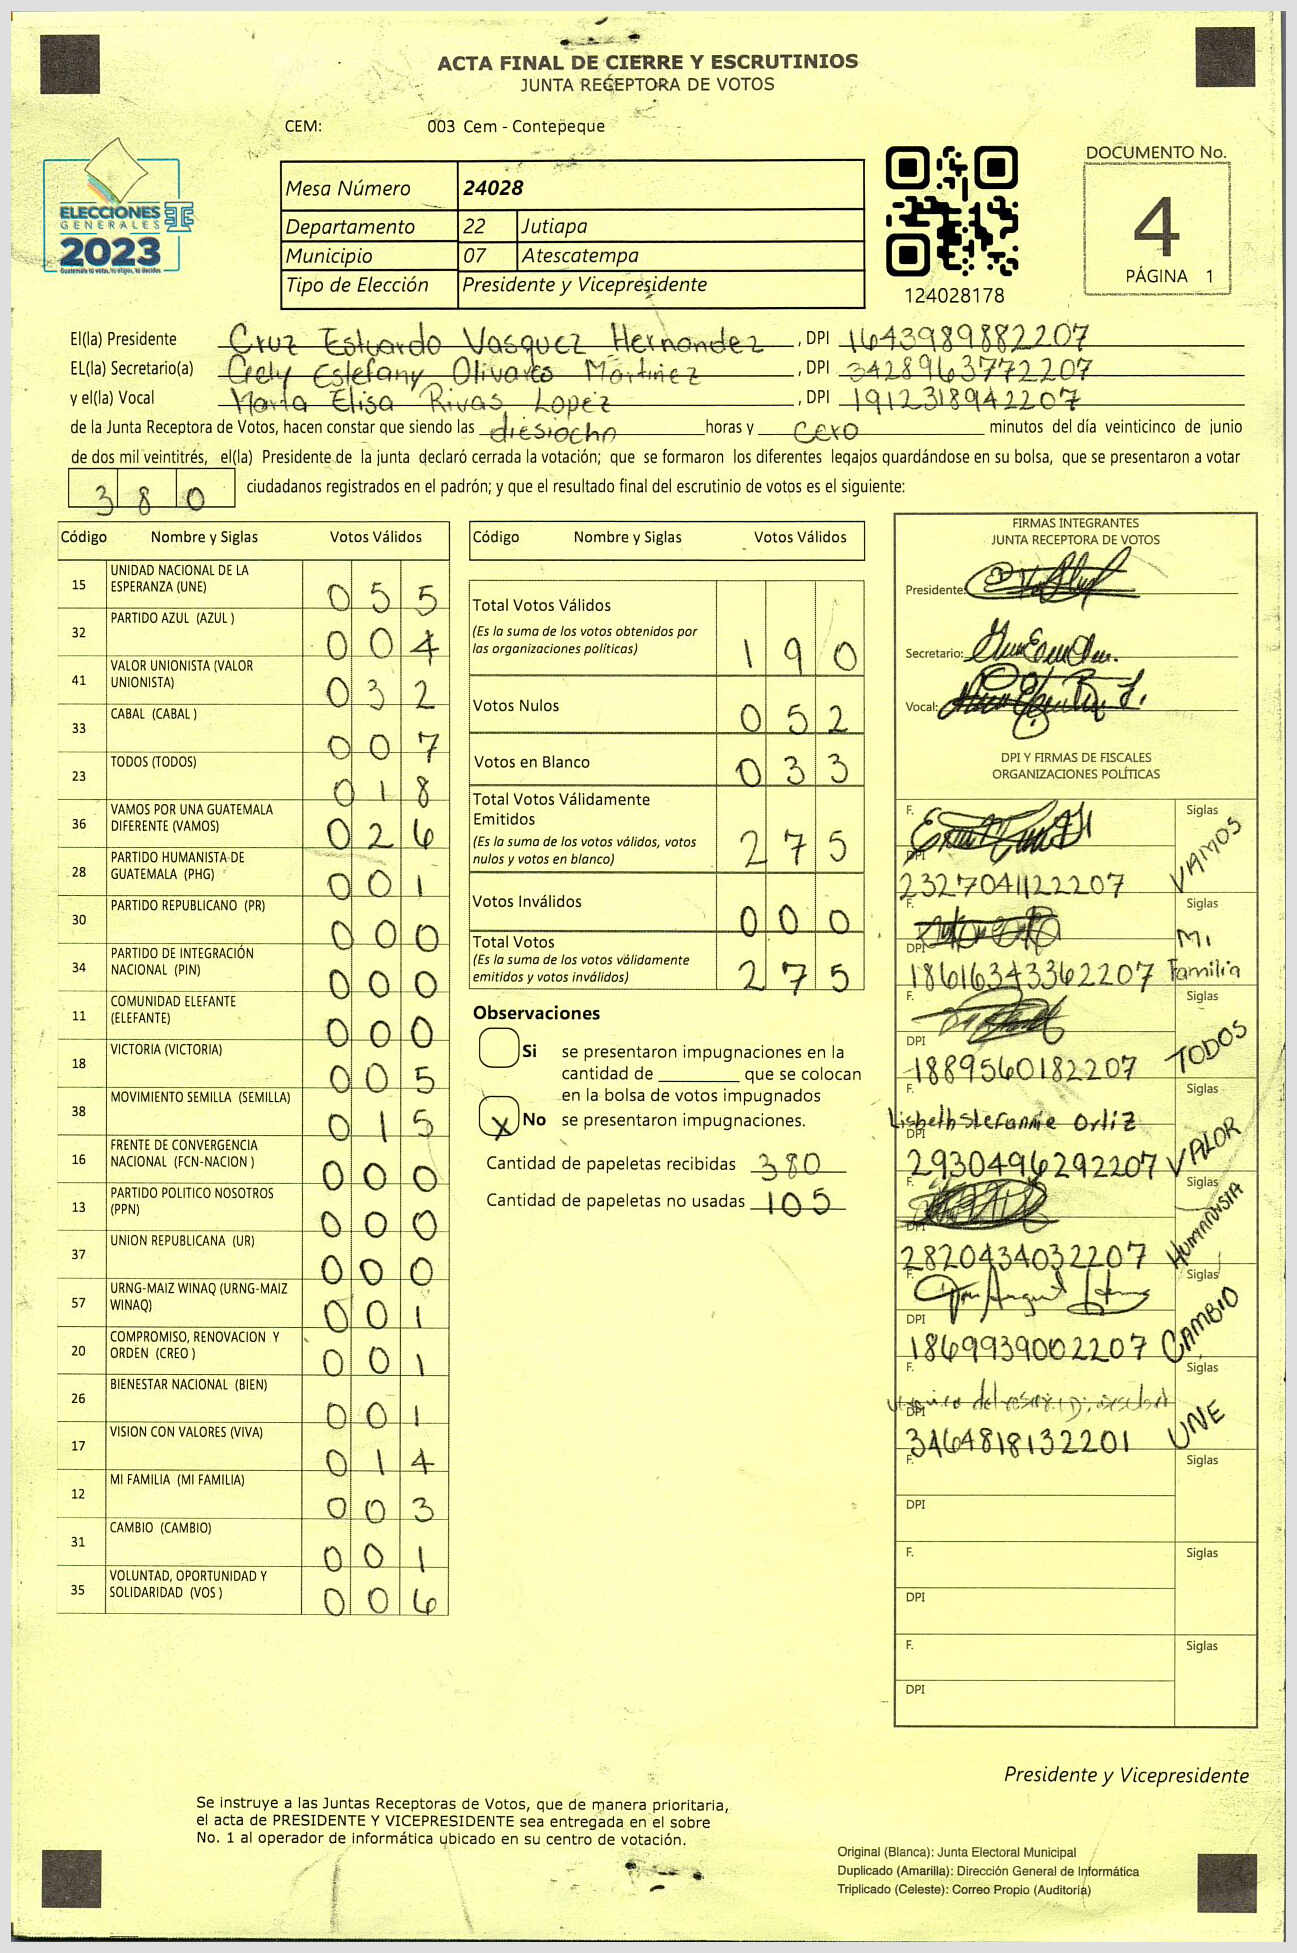 ACTA FINAL DE CIERRE Y ESCRUTINIOS
JUNTA RECEPTORA DE VOTOS
CEM: 003 Cem - Contepeque
ELECCIONES
GENERALES
2023
Guatemala tú votas, tú eliges, tú decides
Mesa Número 24028
Departamento 22 Jutiapa
Municipio 07 Atescatempa
Tipo de Elección Presidente y Vicepresidente
124028178
DOCUMENTO No.
4
PÁGINA 1
El(la) Presidente Cruz Estuardo Vasquez Hernandez, DPI 1643989882207
EL(la) Secretario(a) Estefany Olivares Martinez, DPI 3428963772207
y el(la) Vocal Maria Elisa Rivas Lopez, DPI 1912318942207
de la Junta Receptora de Votos, hacen constar que siendo las diesiocho horas y cero minutos del día veinticinco de junio
de dos mil veintitrés, el(la) Presidente de la junta declaró cerrada la votación; que se formaron los diferentes legajos guardándose en su bolsa, que se presentaron a votar
380 ciudadanos registrados en el padrón; y que el resultado final del escrutinio de votos es el siguiente:
Código Nombre y Siglas Votos Válidos
15 UNIDAD NACIONAL DE LA ESPERANZA (UNE) 055
32 PARTIDO AZUL (AZUL ) 004
41 VALOR UNIONISTA (VALOR UNIONISTA) 032
33 CABAL (CABAL ) 007
23 TODOS (TODOS) 018
36 VAMOS POR UNA GUATEMALA DIFERENTE (VAMOS) 026
28 PARTIDO HUMANISTA DE GUATEMALA (PHG) 001
30 PARTIDO REPUBLICANO (PR) 000
34 PARTIDO DE INTEGRACIÓN NACIONAL (PIN) 000
11 COMUNIDAD ELEFANTE (ELEFANTE) 000
18 VICTORIA (VICTORIA) 005
38 MOVIMIENTO SEMILLA (SEMILLA) 015
16 FRENTE DE CONVERGENCIA NACIONAL (FCN-NACION ) 000
13 PARTIDO POLITICO NOSOTROS (PPN) 000
37 UNION REPUBLICANA (UR) 000
57 URNG-MAIZ WINAQ (URNG-MAIZ WINAQ) 001
20 COMPROMISO, RENOVACION Y ORDEN (CREO ) 001
26 BIENESTAR NACIONAL (BIEN) 001
17 VISION CON VALORES (VIVA) 014
12 MI FAMILIA (MI FAMILIA) 003
31 CAMBIO (CAMBIO) 001
35 VOLUNTAD, OPORTUNIDAD Y SOLIDARIDAD (VOS ) 006
Código Nombre y Siglas Votos Válidos
Total Votos Válidos 190
(Es la suma de los votos obtenidos por
las organizaciones políticas)
Votos Nulos 052
Votos en Blanco 033
Total Votos Válidamente
Emitidos 275
(Es la suma de los votos válidos, votos
nulos y votos en blanco)
Votos Inválidos 000
Total Votos 275
(Es la suma de los votos válidamente
emitidos y votos inválidos)
Observaciones
Si se presentaron impugnaciones en la
cantidad de ________ que se colocan
en la bolsa de votos impugnados
X No se presentaron impugnaciones.
Cantidad de papeletas recibidas 380
Cantidad de papeletas no usadas 105
FIRMAS INTEGRANTES
JUNTA RECEPTORA DE VOTOS
Presidente:
Secretario:
Vocal:
DPI Y FIRMAS DE FISCALES
ORGANIZACIONES POLÍTICAS
F. Siglas VAMOS
DPI 2327041122207
F. Siglas Mi Familia
DPI 18616343362207
F. Siglas TODOS
DPI 1889560182207
F. Lisbeth Stefannie Ortiz Siglas VALOR
DPI 2930496292207
F. Siglas HUMANISTA
DPI 2820434032207
F. Siglas CAMBIO
DPI 1869939002207
F. Siglas UNE
DPI 3464818132201
F. Siglas
DPI
F. Siglas
DPI
F. Siglas
DPI
Presidente y Vicepresidente
Se instruye a las Juntas Receptoras de Votos, que de manera prioritaria,
el acta de PRESIDENTE Y VICEPRESIDENTE sea entregada en el sobre
No. 1 al operador de informática ubicado en su centro de votación.
Original (Blanca): Junta Electoral Municipal
Duplicado (Amarilla): Dirección General de Informática
Triplicado (Celeste): Correo Propio (Auditoria)